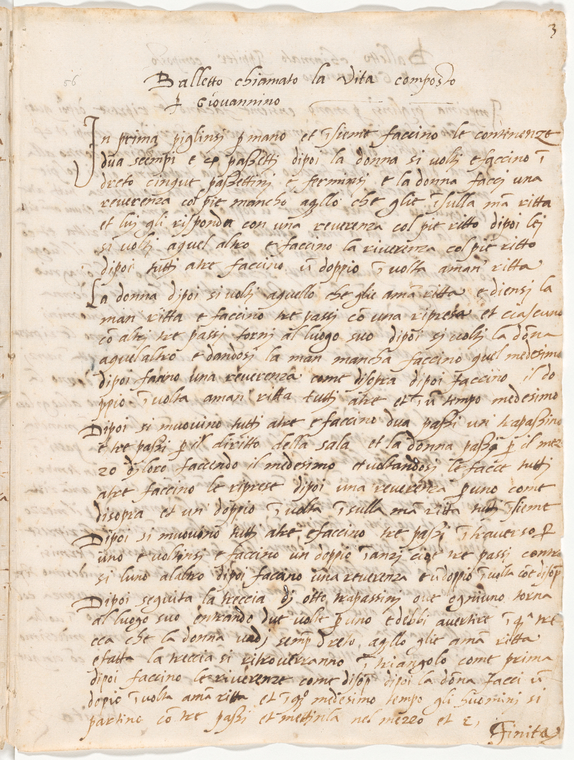 3
Balletto chiamato la Vita composto
Giovannino
In prima piglinsi p mano et īsieme faccino le continenze
dua scempi e passetti dipoi la donna si volti e faccino
dreto cinque passettini e ferminsi e la donna facci una
reverenza col pie mancho agllo che glie īsulla mā ritta
et lui gli risponda con una reverenza col pie ritto dipoi lej
si volti aquel altro e faccino la riverenza col pie ritto
dipoi tutti atre faccino ū doppio ī volta aman ritta
La donna dipoi si volti aquello che glie amā ritta e diensi la
man ritta e faccino tre passi cō una ripresa et ciascuno
cō altrj tre passi torni al luogo suo dipoi si volti la dōna
aquelaltro e dandosi la man mancha faccino quel medesimo
dipoi fanno una reverenza come disopra dipoi faccino il do
ppio ī volta aman ritta tutti atre et ī ū tempo medesimo
Dipoi si muovino tutti atre e faccino dua passi un trapassino
e tre passi p il diritto della sala et la donna passa p il mez
zo dj loro faccendo il medesimo e voltandosi le facce tutti
atre faccino le riprese dipoi una reverenza p uno come
disopra et un doppio ī volta ī sulla mā ritta tutti īsieme
Dipoi si muovino tutti atre e faccino tre passi ītraverso p
uno e voltinsi e faccino un doppio īanzi cioe tre passi contro
si luno alaltro dipoi facāno una reverenza e ū doppio ī volta
Dipoi seguita la treccia dj otto trapassini che ogniuno torna
al luogo suo entrando due volte p uno e debbi avertire
cca che la donna vadi semp dreto agllo glie amā ritta
e fatta la treccia si ritroverranno ī triangolo come prima
dipoi faccino le reverenze come disop dipoi la dōna facci ū
dopio ī volta amā ritta et medesimo tempo gli huomini si
partino cō tre passi et mettinla nel mezzo et
Finita